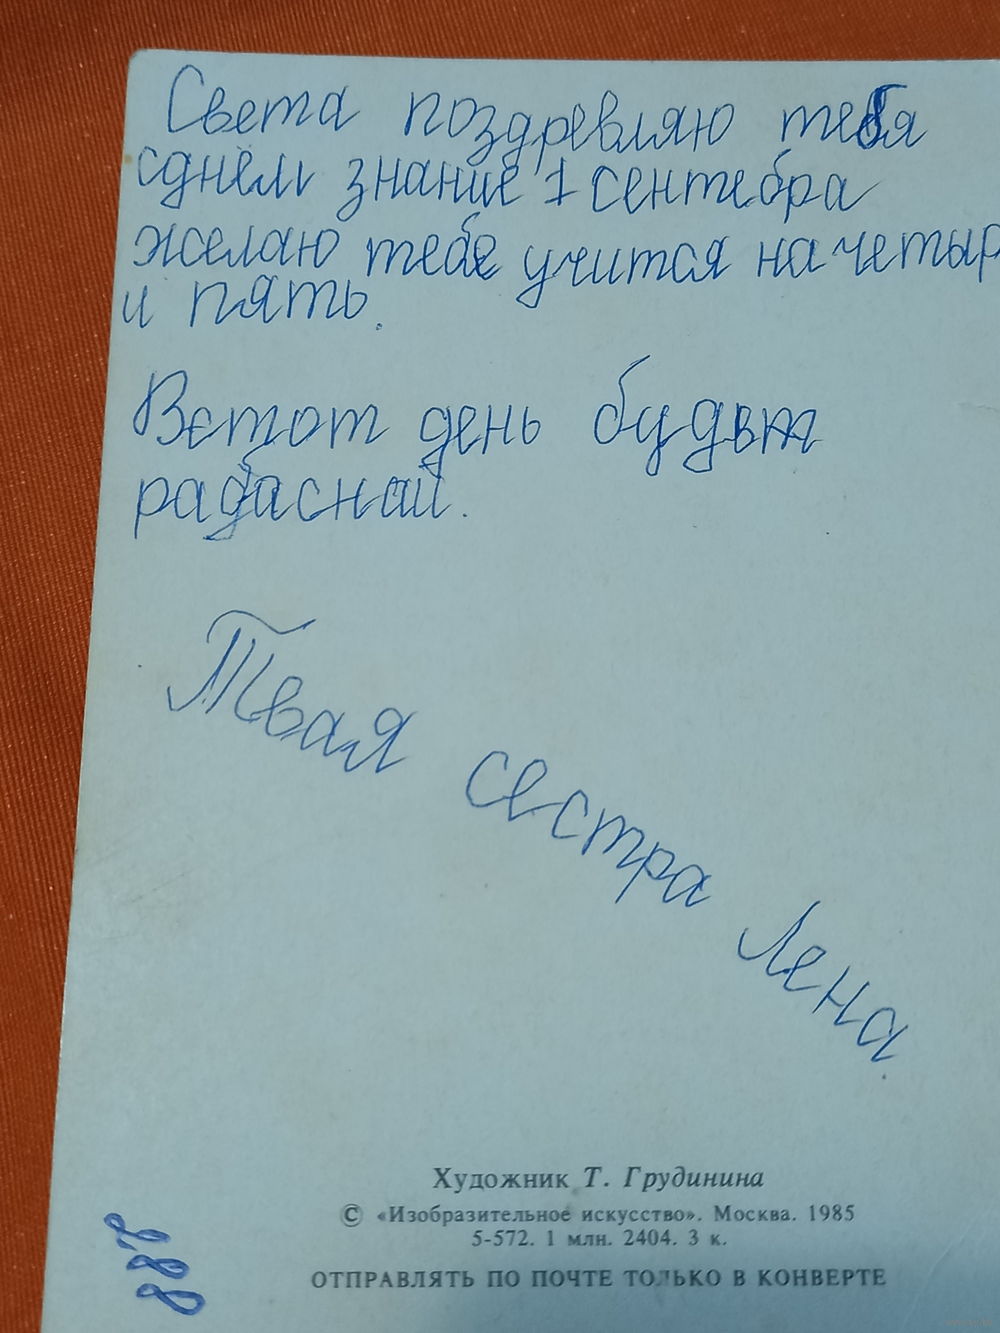 Света поздревляю тебя
сднём знание 1 сентебра
желаю тебе учится на четыр
и пять.
Вэтот день будет
радаснай.
Твая сестра Лена.
Художник Т. Грудинина
© «Изобразительное искусство». Москва. 1985
5-572. 1 млн. 2404. 3 к.
ОТПРАВЛЯТЬ ПО ПОЧТЕ ТОЛЬКО В КОНВЕРТЕ